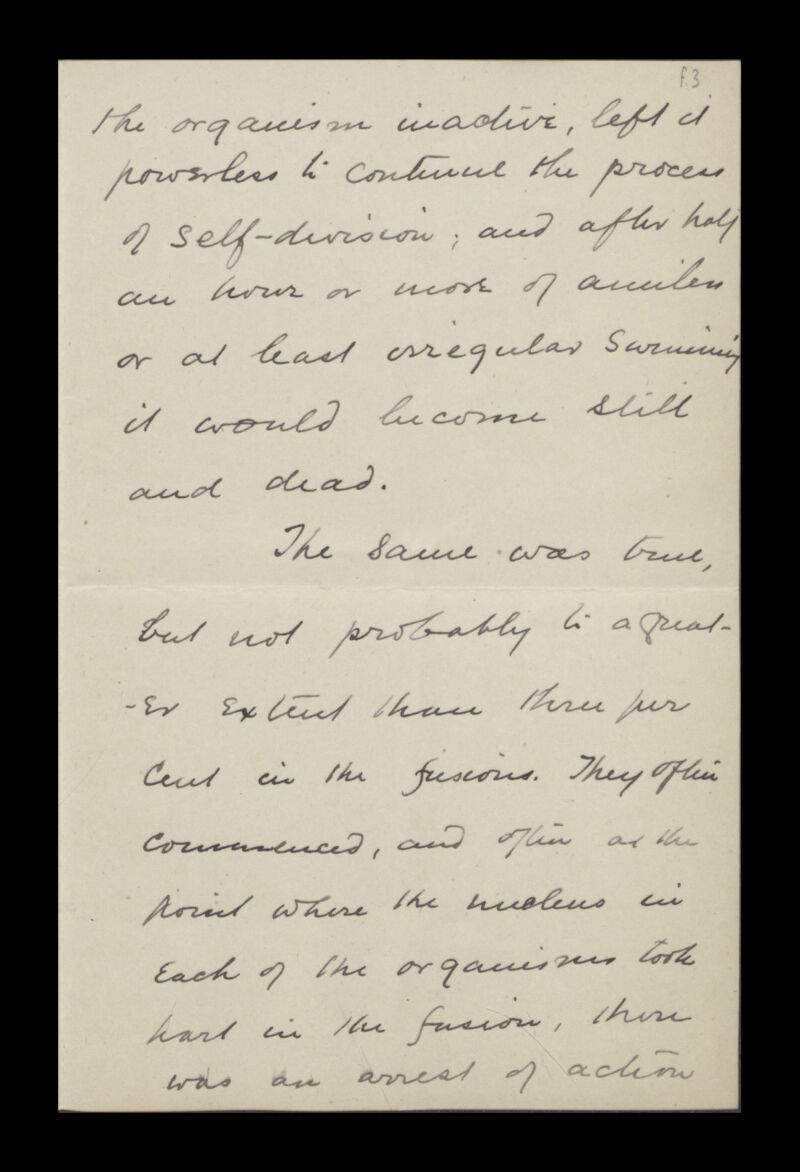 f.3
the organism inactive, left it
powerless to continue the process
of self-division; and after half
an hour or more of aimless
or at least irregular swimming
it would become still
and dead.
The same was true,
but not probably to a great-
-er extent than three per
cent in the fusions. They often
commenced, and often at the
point where the nucleus in
each of the organisms took
part in the fusion, there
was an arrest of action